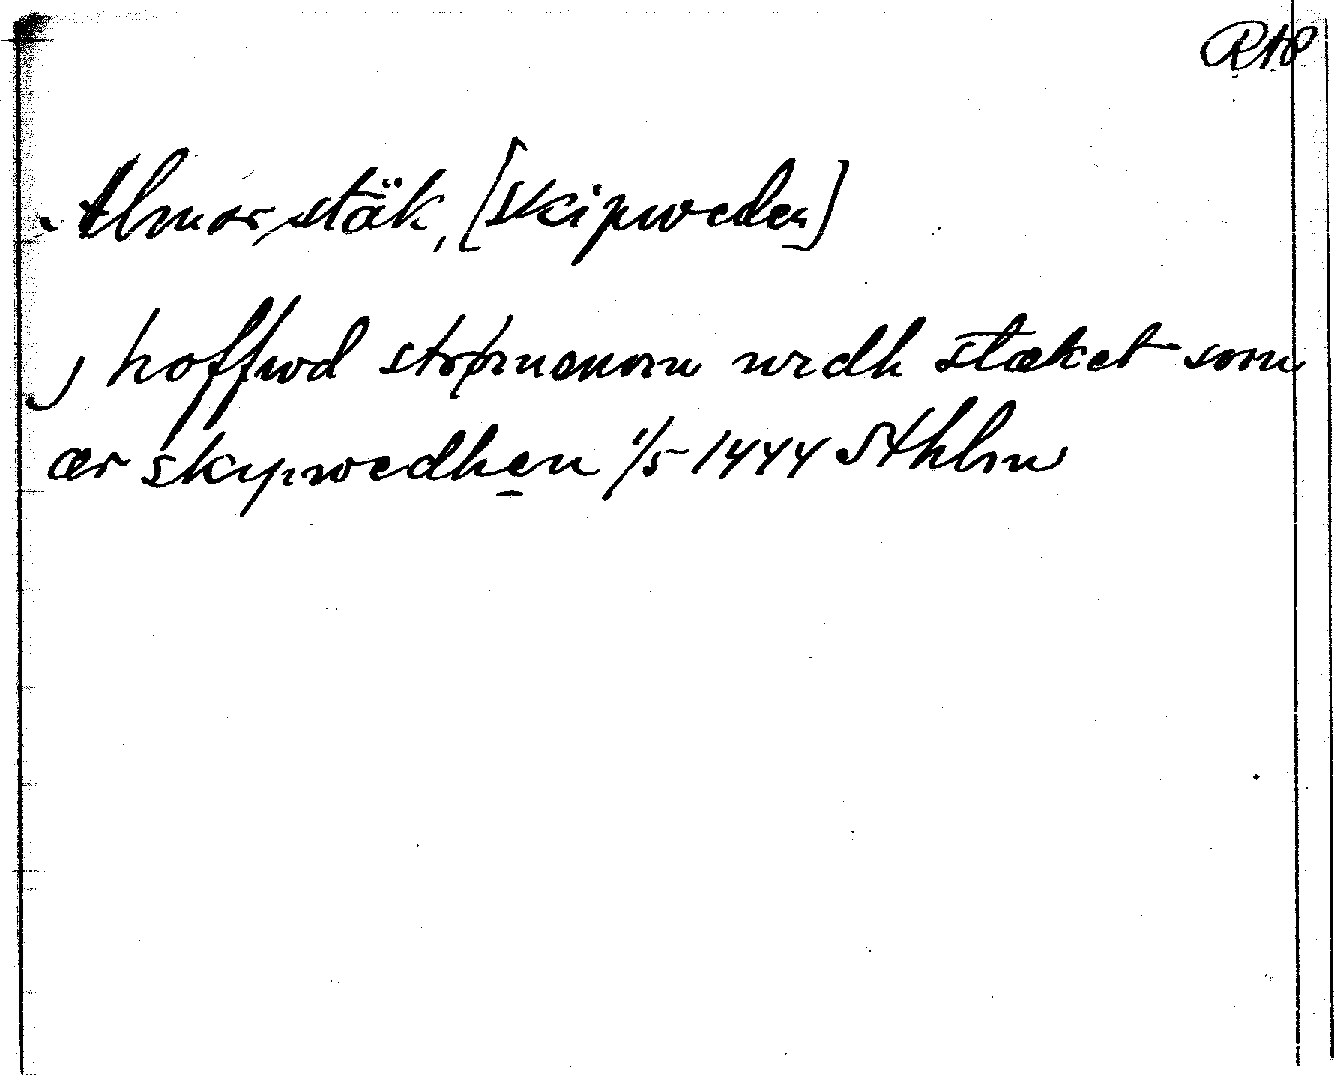 RAP
Almarstäk, [Skipweden]
j hoffwd strømenom widh stæket som
ær skypwedhen 1/5 1444 Sthlm